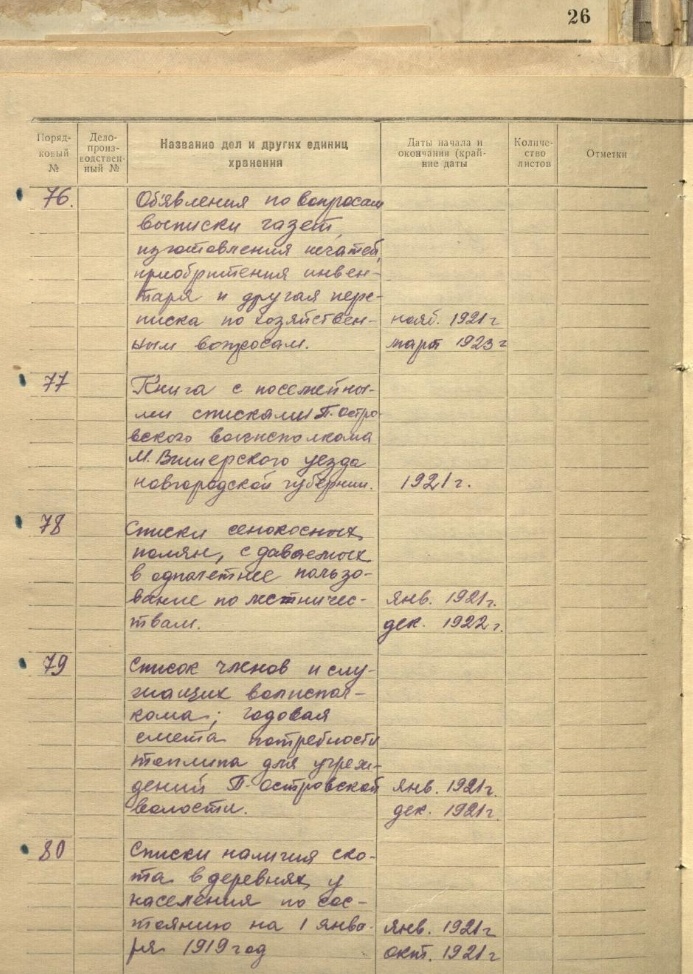 26
Порядковый № Дело-производственный № Название дел и других единиц хранения Даты начала и окончания (край-ние даты Количе-ство листов Отметки
76. Объявления по вопросам
выписки газет,
изготовления печатей,
приобритения инвен-
таря и другая пере-
писка по хозяйствен- нояб. 1921г
ным вопросам. март 1923г
77 Книга с посемейны-
ми списками П. остро
вского волисполкома
М. Вишерского уезда
новгородской губернии. 1921г.
78 Списки сенокосных
полян, сдаваемых
в однолетнее пользо-
вание по лестничес- янв. 1921г.
твам. дек. 1922г.
79 Список членов и слу-
жащих волиспол-
кома; годовая
смета потребности
топлива для учреж-
дений П. островской янв. 1921г.
волости. дек. 1921г.
80 Списки наличия ско-
та в деревнях у
населения по сос-
тоянию на 1 янва- янв. 1921г
ря 1919 год окт. 1921г